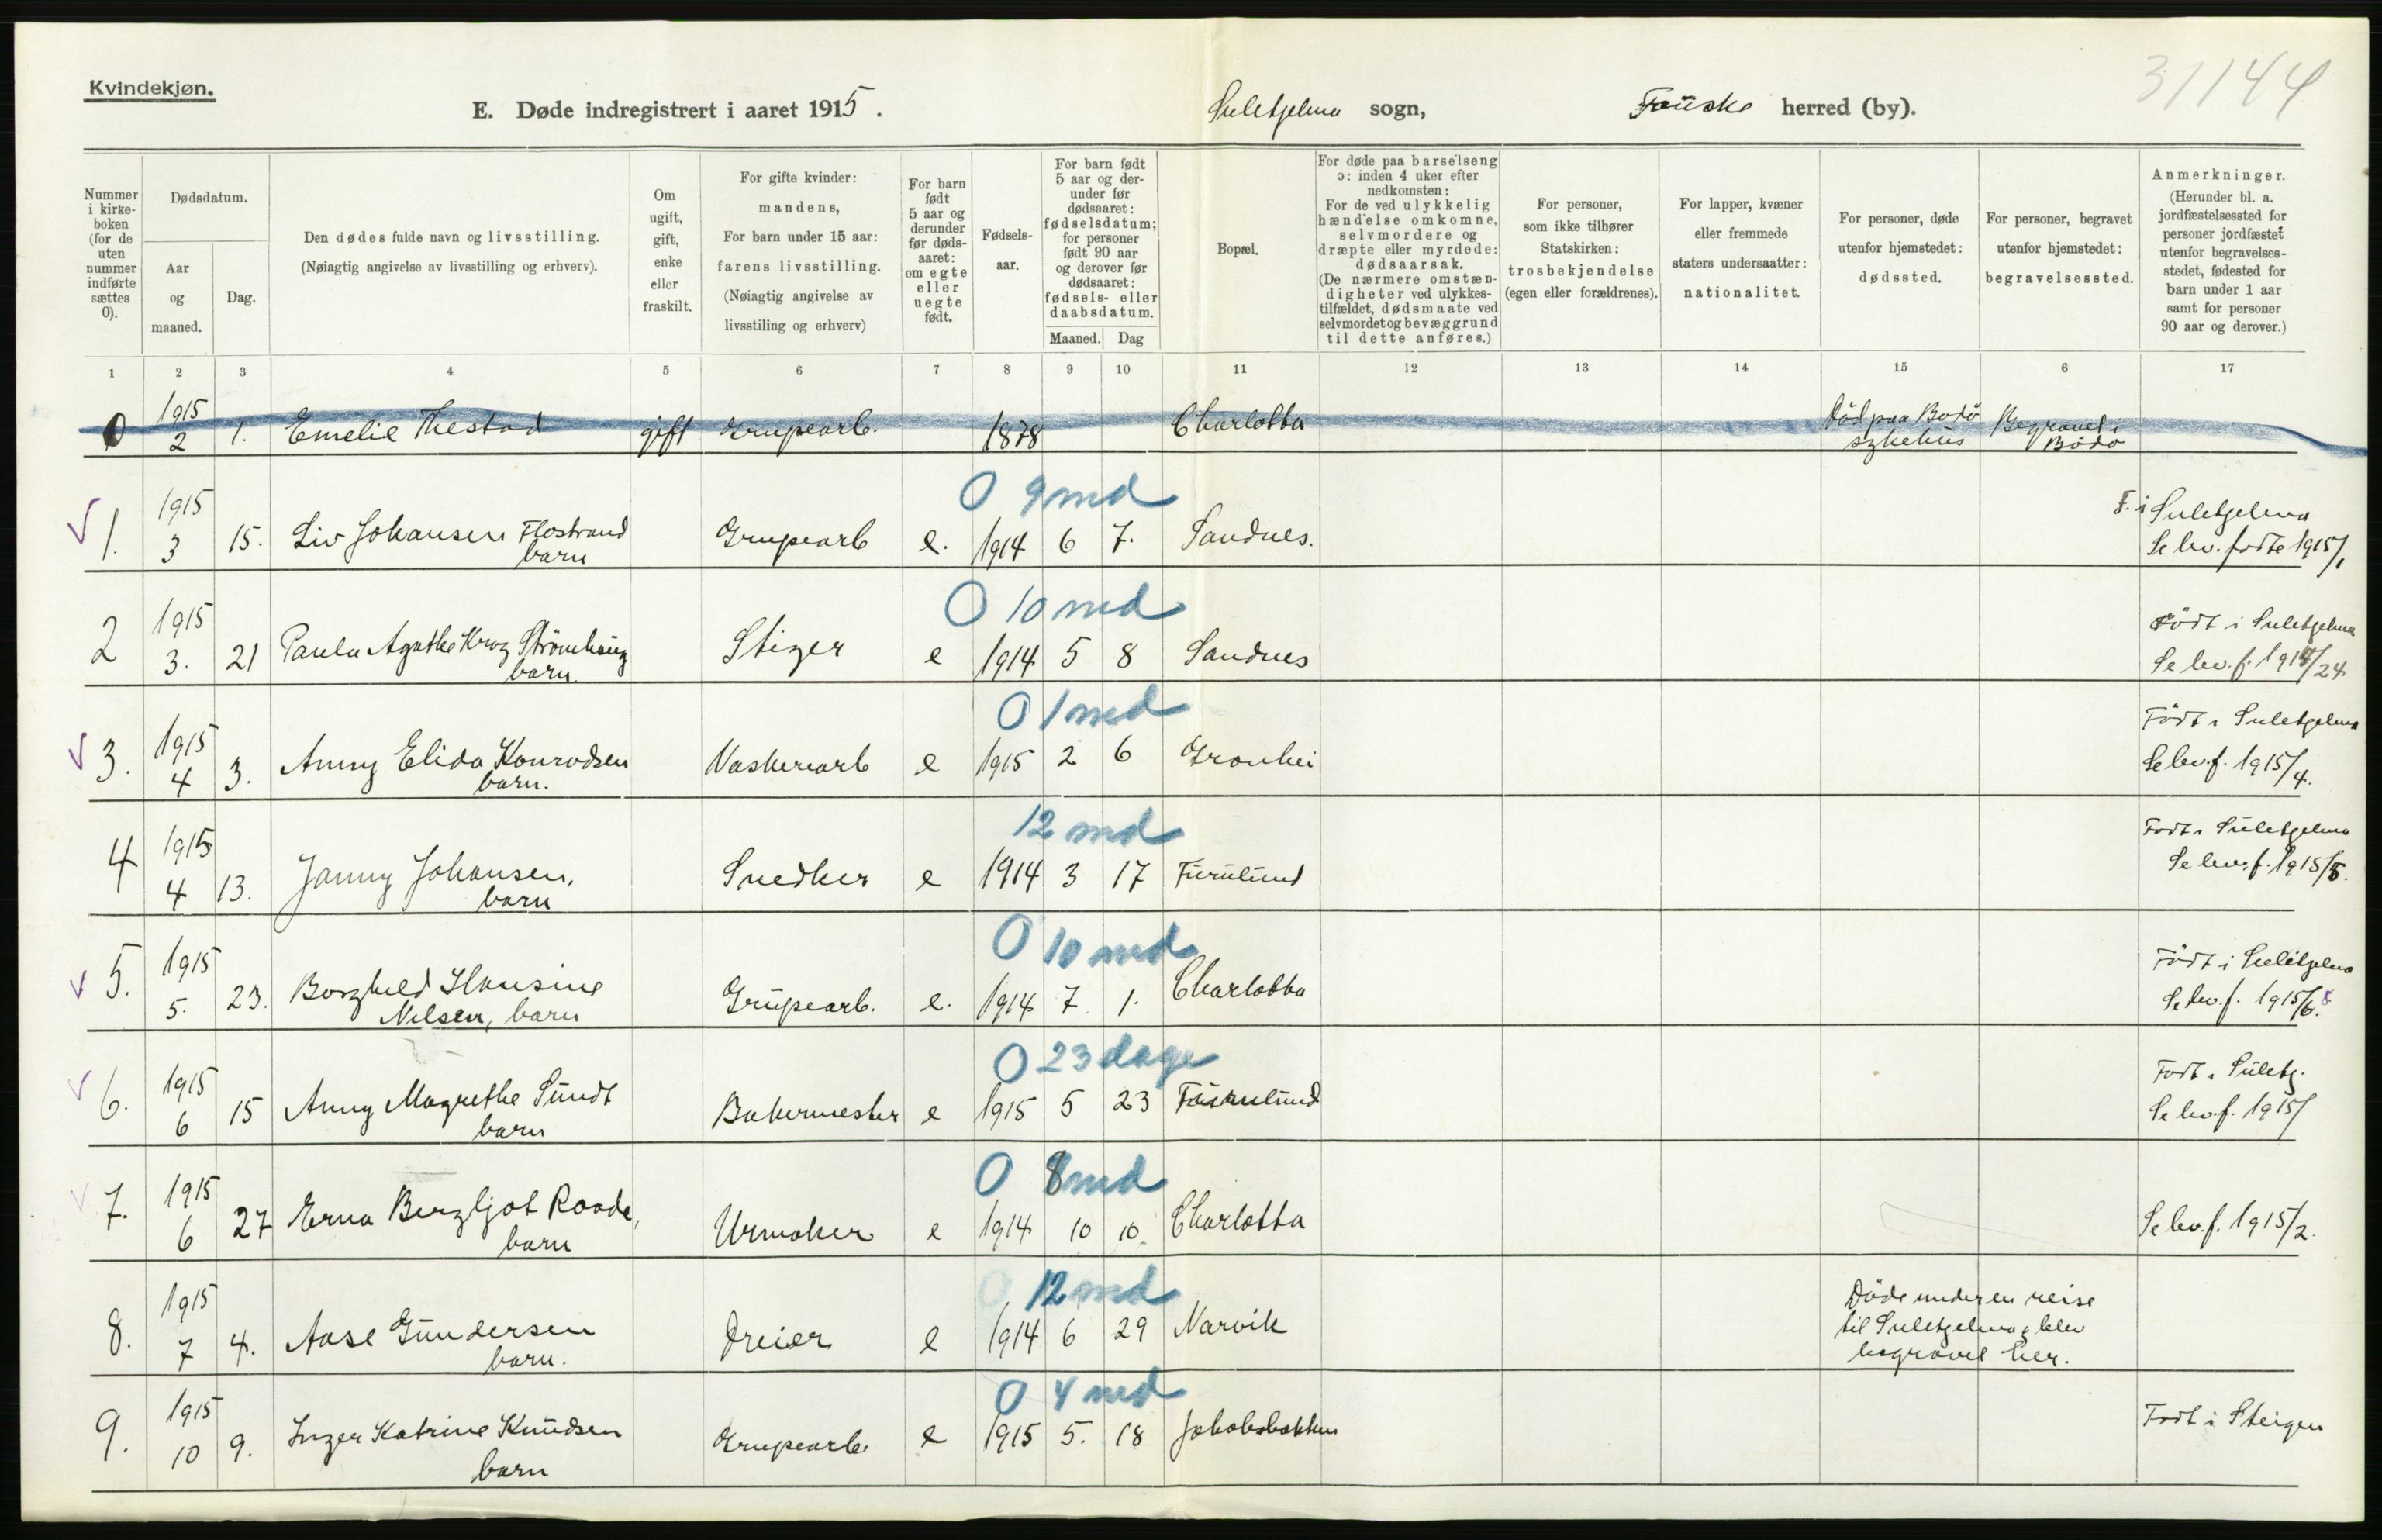 Kvindekjøn.
31144
E. Døde indregistrert i aaret 1915. Sulitjelma sogn, Fauske herred (by).
Nummer i kirke-boken (for de uten nummer indførte sættes 0).
Dødsdatum.
Aar og maaned.
Dag.
Den dødes fulde navn og livsstilling.
(Nøiagtig angivelse av livsstilling og erhverv).
Om ugift, gift, enke eller fraskilt.
For gifte kvinder: mandens,
For barn under 15 aar: farens livsstilling.
(Nøiagtig angivelse av livsstiling og erhverv)
For barn født 5 aar og derunder før døds-aaret: om egte eller uegte født.
Fødsels-aar.
For barn født 5 aar og der-under før dødsaaret: fødselsdatum; for personer født 90 aar og derover før dødsaaret: fødsels- eller daabsdatum.
Maaned. Dag
Bopæl.
For døde paa barselseng ɔ: inden 4 uker efter nedkomsten:
For de ved ulykkelig hændelse omkomne, selvmordere og dræpte eller myrdede: dødsaarsak.
(De nærmere omstæn-digheter ved ulykkes-tilfældet, dødsmaate ved selvmordet og bevæggrund til dette anføres.)
For personer, som ikke tilhører Statskirken: trosbekjendelse (egen eller forældrenes).
For lapper, kvæner eller fremmede staters undersaatter: nationalitet.
For personer, døde utenfor hjemstedet: dødssted.
For personer, begravet utenfor hjemstedet: begravelsessted.
Anmerkninger.
(Herunder bl. a. jordfæstelsessted for personer jordfæstet utenfor begravelses-stedet, fødested for barn under 1 aar samt for personer 90 aar og derover.)
1 2 3 4 5 6 7 8 9 10 11 12 13 14 15 6 17
0 1915 2 1. Emelie Thestad gift Grupearb. 1878 Charlotta Död paa Bodö sykehus Begravet i Bodö
0 9 md
1. 1915 3 15. Liv Johansen Flostrand barn Grupearb e. 1914 6 7. Sandnes. F. i Sulitjelma Se lev. fødte 1915/1
0 10 md
2 1915 3. 21 Paula Agathe Krog Strömhaug barn. Stiger e 1914 5 8 Sandnes Födt i Sulitjelma Se lev. f. 1914/24
0 1 md
3. 1915 4 3. Anny Elida Konradsen barn. Vaskeriarb e 1915 2 6 Grønli Födt i Sulitjelma Se lev. f. 1915/4.
12 md
4 1915 4 13. Janny Johansen, barn Snedker e 1914 3 17 Furulund Født i Sulitjelma Se lev. f. 1915/5.
0 10 md
5. 1915 5. 23. Borghild Hansine Nilsen, barn Grupearb. e. 1914 7. 1. Charlotta Födt i Sulitjelma Se lev. f. 1915/6.
0 23 dage
6. 1915 6 15 Anny Magrethe Sundt barn Bakermester e 1915 5 23 Furulund Født i Sulitj. Se lev. f. 1915/
0 8 md
7. 1915 6 27 Erna Bergljot Roade, barn Urmaker e 1914 10 10. Charlotta Se lev. f. 1915/2.
0 12 md
8. 1915 7 4. Aase Gundersen barn. Dreier e 1914 6 29 Narvik Döde under en reise til Sulitjelma, blev begravet her.
0 4 md
9. 1915 10 9. Inger Katrine Knudsen barn Grupearb. e 1915 5. 18 Jakobsbakken Født i Steigen